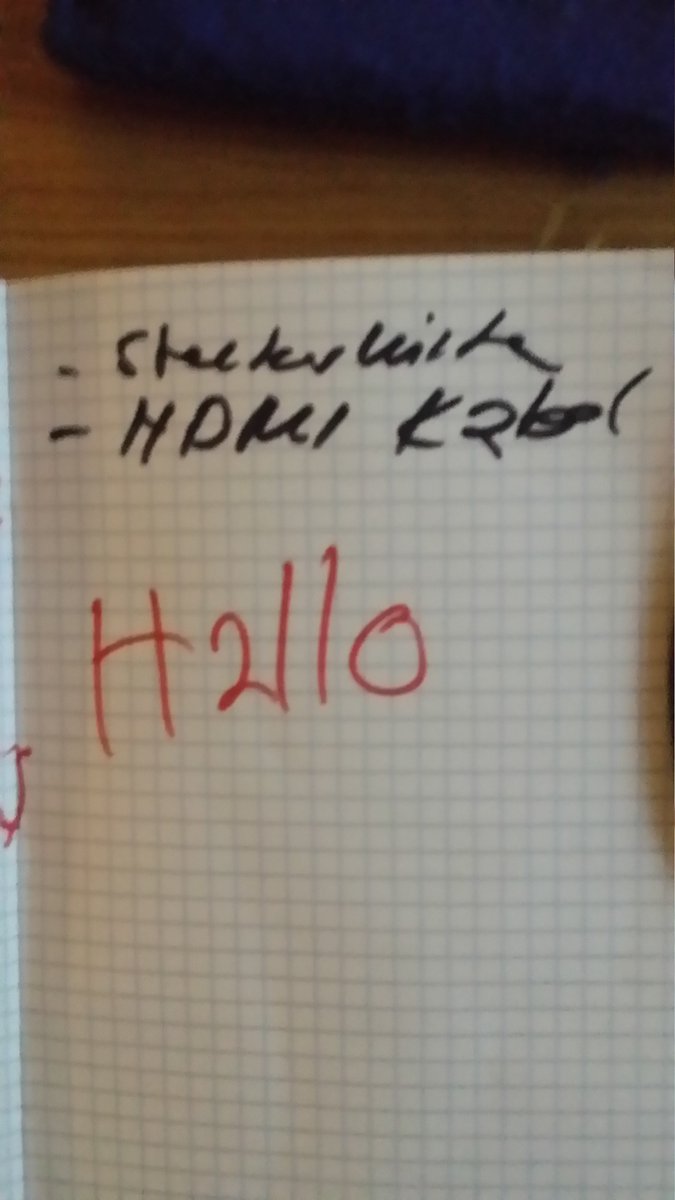 - Steckerkiste
- HDMI Kabel
Hallo